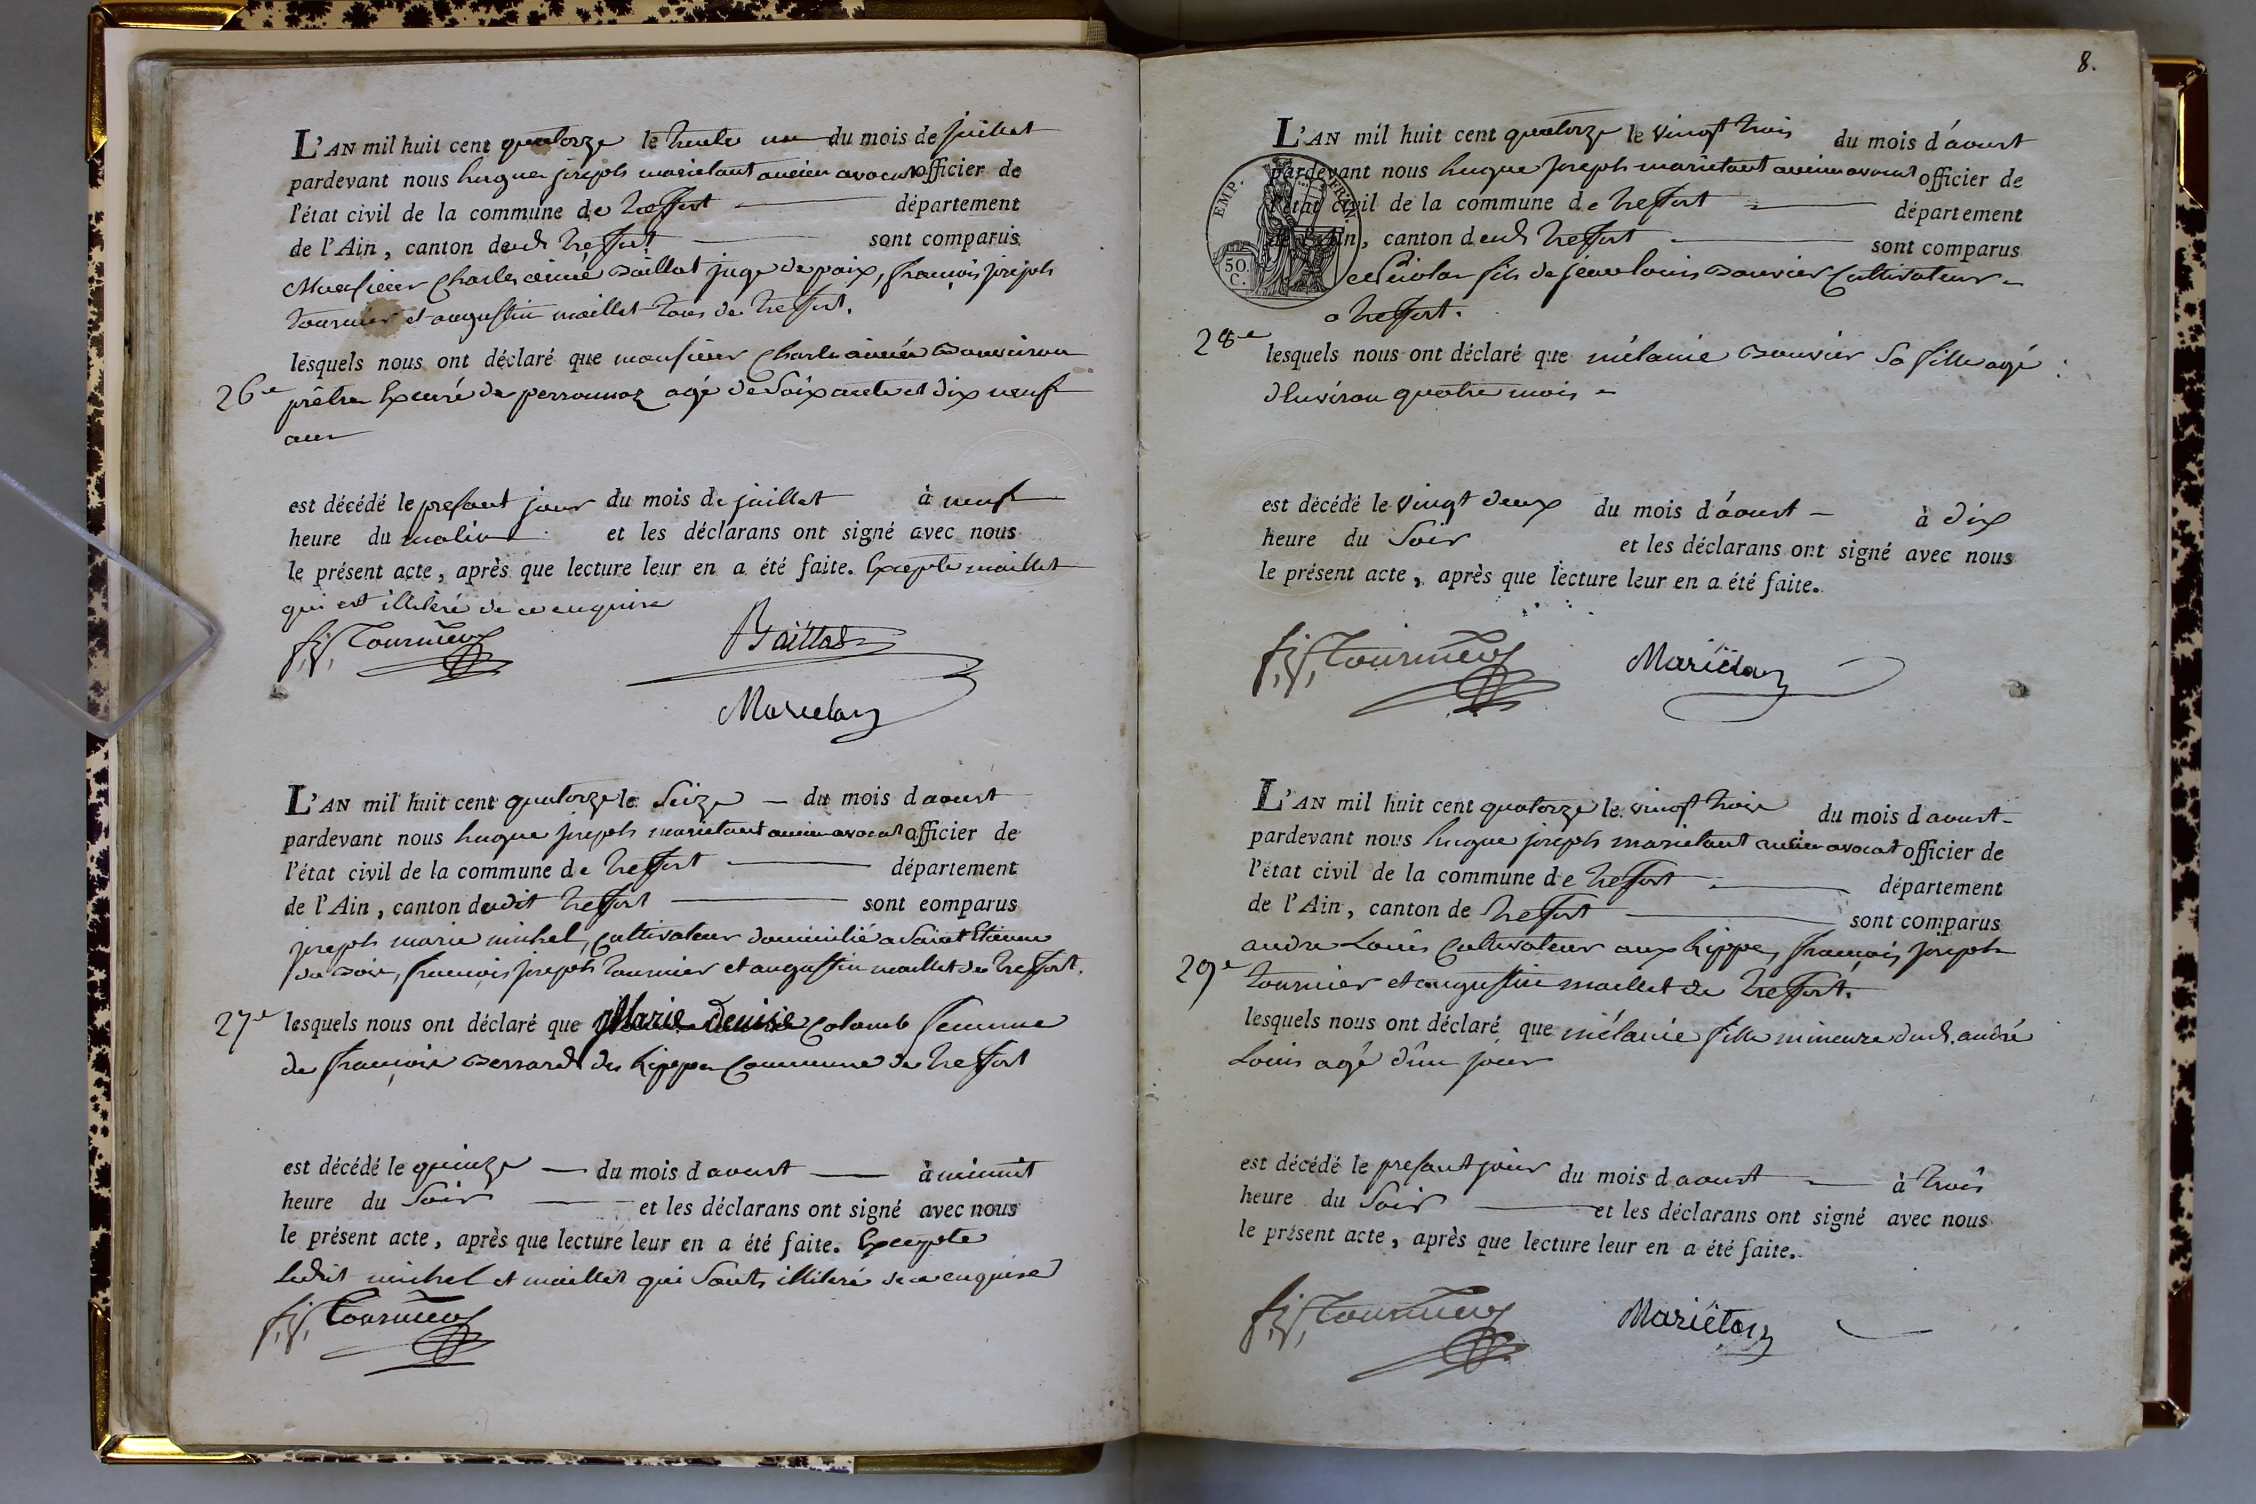 L'AN mil huit cent quatorze le trente un du mois de juillet
pardevant nous hugue joseph marietant ancien avocat officier de
l'état civil de la commune de treffort département
de l'Ain, canton dudt treffort sont comparus
Monsieur Charles aimé Baillat juge de paix, françois joseph
tournier et augustin maillet tous de treffort.
26e
lesquels nous ont déclaré que monsieur Charle aimée
prêtre Excuré de perronnaz agé de Soixante et dix neuf
ans
est décédé le present jour du mois de juillet à neuf
heure du matin et les déclarans ont signé avec nous
le présent acte, après que lecture leur en a été faite. Excepte maillet
qui est illiteré de ce enquise
f. j. Tournier
Baillat
Marietan
L'AN mil huit cent quatorze le Seize du mois d aoust
pardevant nous hugue joseph marietant ancien avocat officier de
l'état civil de la commune de treffort département
de l'Ain, canton dudit treffort sont comparus
joseph marie michel, Cultivateur domicilié a Saint Etienne
du Bois, françois joseph tournier et augustin maillet de treffort.
27e
lesquels nous ont déclaré que Marie Denise Colomb femme
de françois Berrard des hippes Commune de treffort
est décédé le quinze du mois d aoust à minuit
heure du Soir et les déclarans ont signé avec nous
le présent acte, après que lecture leur en a été faite. Excepte
Ledit michel et maillet qui Sont illiteré de ce enquise
f. j. Tournier
8.
L'AN mil huit cent quatorze le vingt trois du mois d'aoust
pardevant nous hugue joseph marietant ancien avocat officier de
l'état civil de la commune de treffort département
de l'Ain, canton dudt treffort sont comparus
EMP. FRAN.
50. C.
fils de jean louis Bouvier Cultivateur
a treffort.
28e
lesquels nous ont déclaré que mélanie Bouvier Sa fille agé
d'Environ quatre mois
est décédé le vingt deux du mois d'aoust à dix
heure du Soir et les déclarans ont signé avec nous
le présent acte, après que lecture leur en a été faite.
f. j. Tournier
Mariétan
L'AN mil huit cent quatorze le vingt trois du mois d aoust
pardevant nous hugue joseph marietant ancien avocat officier de
l'état civil de la commune de treffort département
de l'Ain, canton de treffort sont comparus
andre Louis Cultivateur aux hippes, françois joseph
29e
tournier et augustin maillet de treffort.
lesquels nous ont déclaré que mélanie fille mineure dudt. andré
Louis agé d'un jour
est décédé le present jour du mois d aoust à trois
heure du Soir et les déclarans ont signé avec nous
le présent acte, après que lecture leur en a été faite.
f. j. Tournier
Mariétan